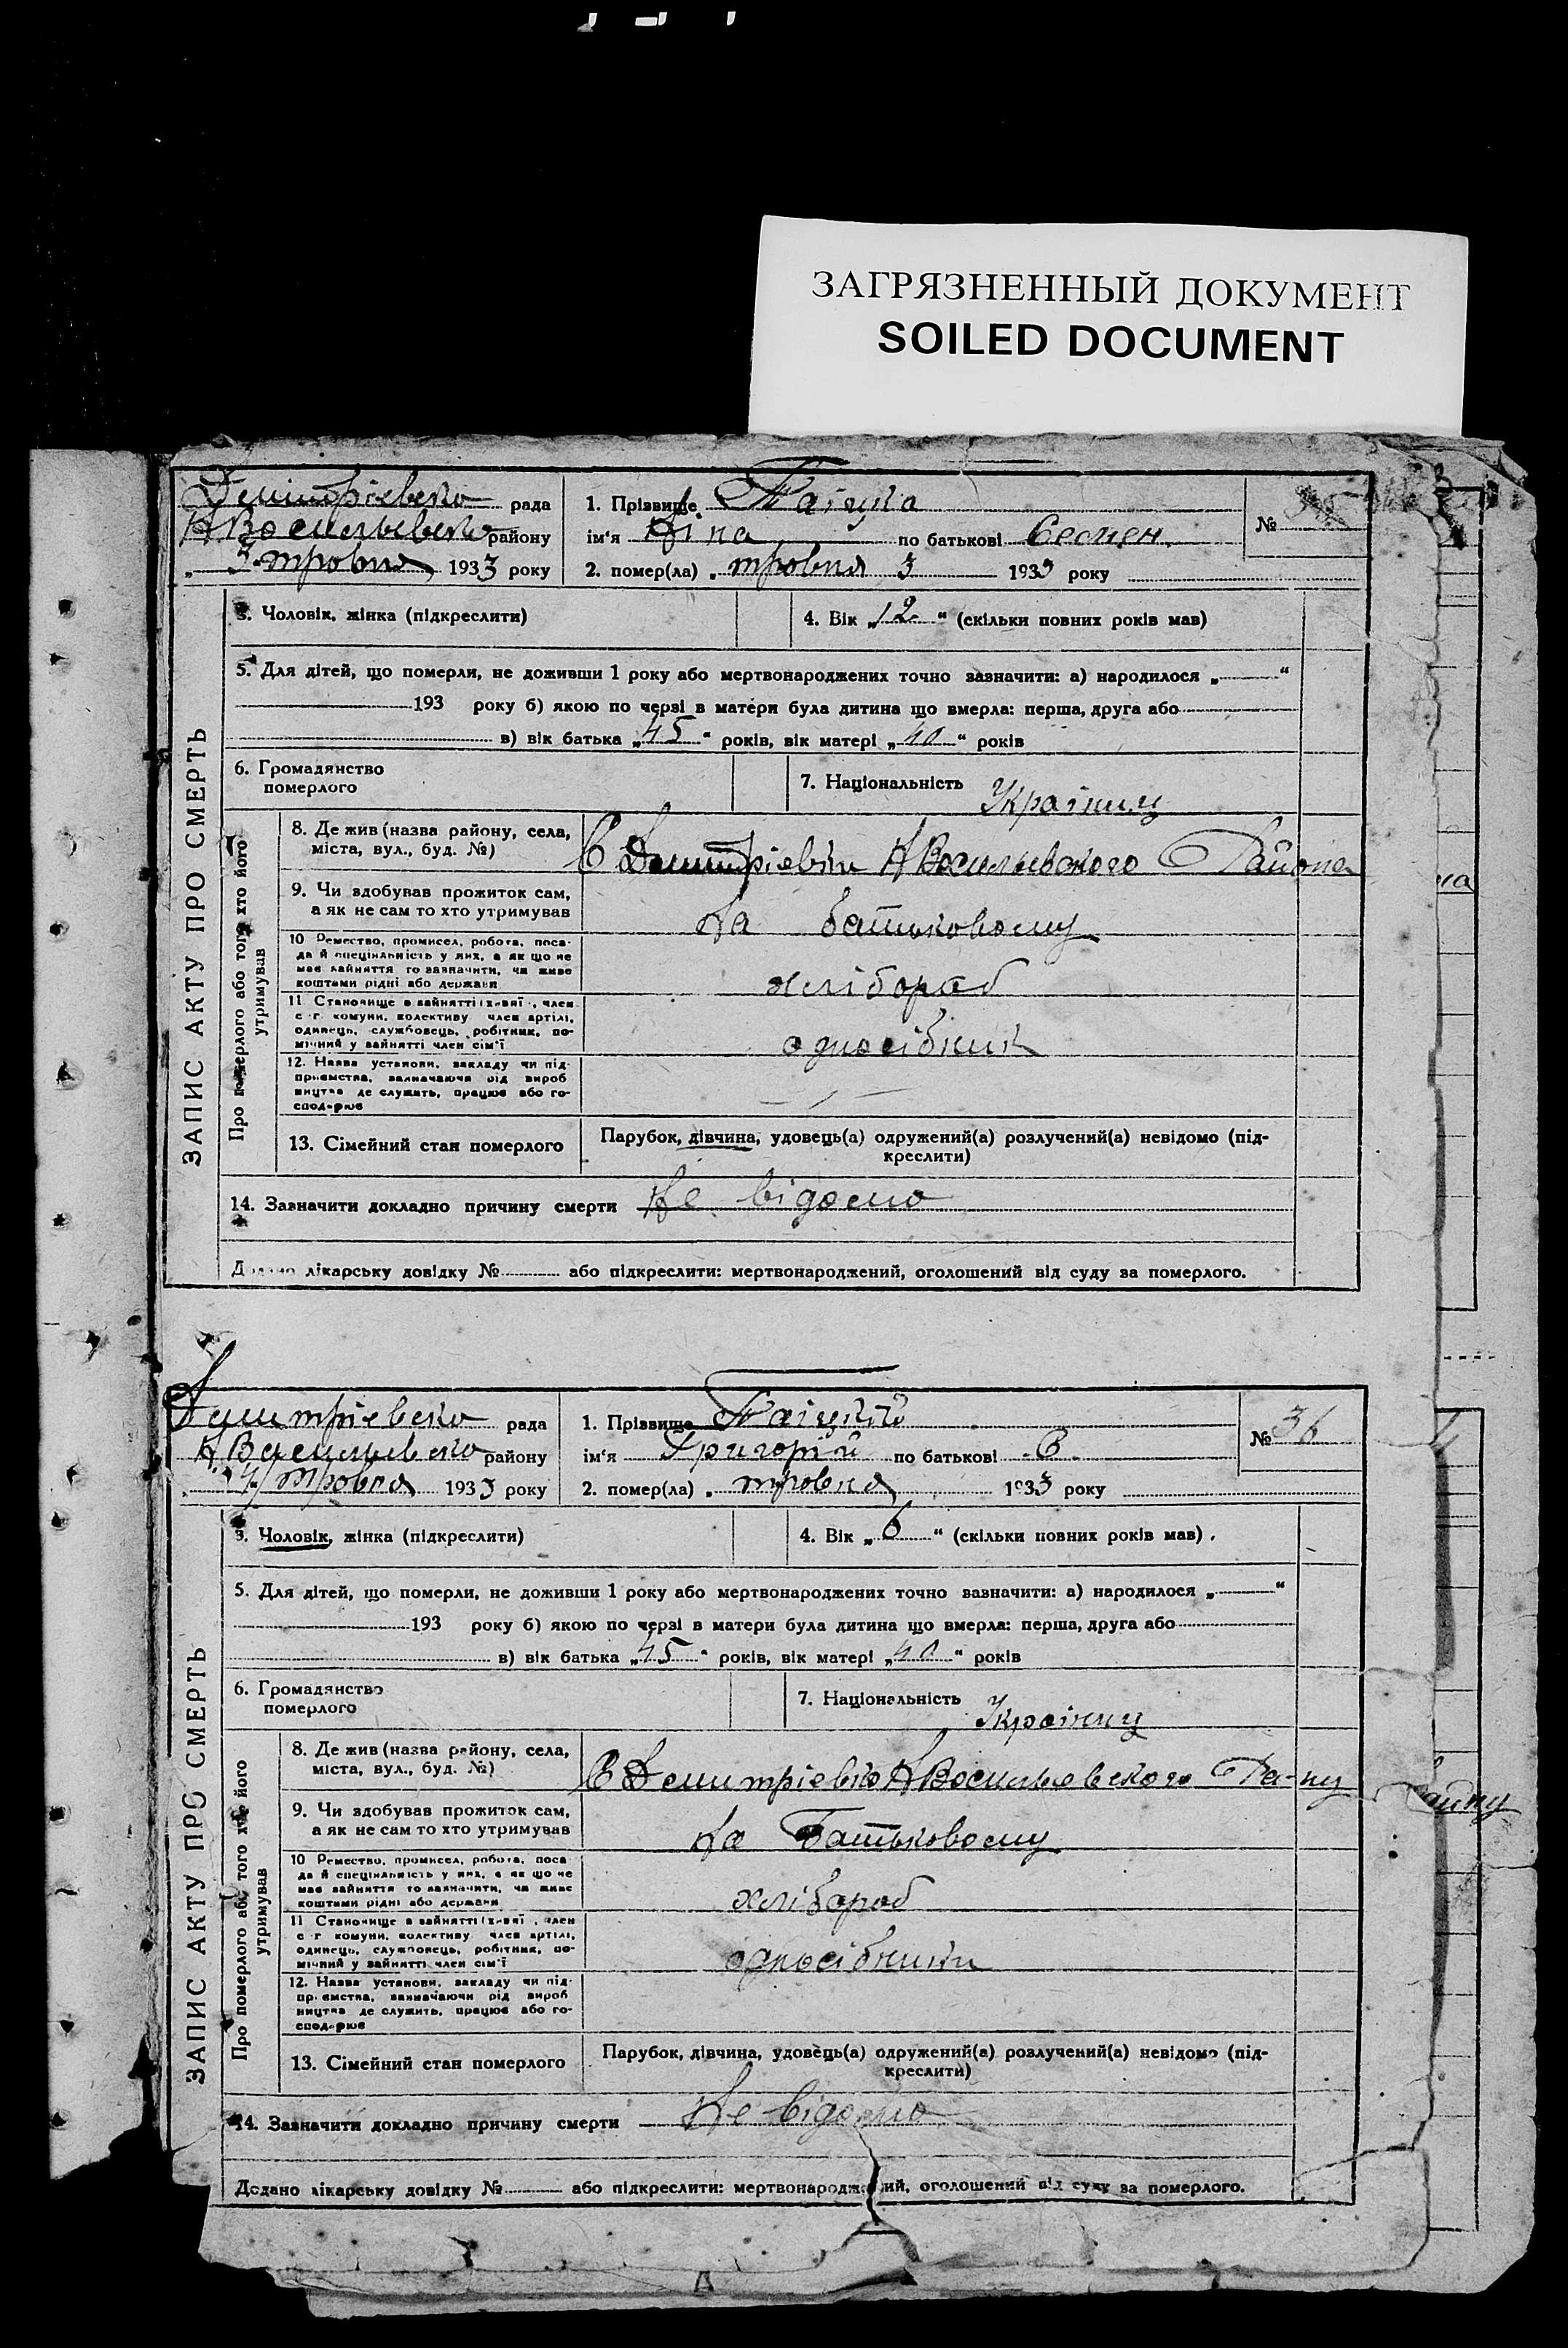 ЗАГРЯЗНЕННЫЙ ДОКУМЕНТ
SOILED DOCUMENT
Дмитрієвско рада
НВасильевско району
„ 3 травня 1933 року
1. Прізвище
ім'я Ніна по батькові Семен.
2. помер(ла) „ травня 3 1933 року
№ 35
ЗАПИС АКТУ ПРО СМЕРТЬ
3. Чоловік, жінка (підкреслити)
4. Вік „12“ (скільки повних років мав)
5. Для дітей, що померли, не доживши 1 року або мертвонароджених точно зазначити: а) народилося „ “
193 року б) якою по черзі в матери була дитина що вмерла: перша, друга або
в) вік батька „45“ років, вік матері „40“ років
6. Громадянство
померлого
7. Національність Українц
Про померлого або того хто його
утримував
8. Де жив (назва району, села,
міста, вул., буд. №)
С Дмитрієвки НВасильевского Района
9. Чи здобував прожиток сам,
а як не сам то хто утримував
На батьковому
10 Ремество, промисел, робота, поса-
да й спеціяльність у них, а як що не
має зайняття то зазначити, чи живе
коштами рідні або держави
хлібороб
11 Становище в зайнятті (хазяї , член
с-г комуни, колективу член артілі,
одинець, службовець, робітник, по-
мічний у зайнятті член сім'ї
односібник
12. Назва установи, закладу чи під-
приємства, зазначаючи рід вироб
ництва де служить, працює або го-
сподарює
13. Сімейний стан померлого
Парубок, дівчина, удовець(а) одружений(а) розлучений(а) невідомо (під-
креслити)
14. Зазначити докладно причину смерти Не відомо
Додано лікарську довідку № або підкреслити: мертвонароджений, оголошений від суду за померлого.
Дмитрієвско рада
НВасильевско району
„ 4 травня 1933 року
1. Прізвище
ім'я Григорій по батькові С.
2. помер(ла) „ травня 1933 року
№ 36
ЗАПИС АКТУ ПРО СМЕРТЬ
3. Чоловік, жінка (підкреслити)
4. Вік „6“ (скільки повних років мав)
5. Для дітей, що померли, не доживши 1 року або мертвонароджених точно зазначити: а) народилося „ “
193 року б) якою по черзі в матери була дитина що вмерла: перша, друга або
в) вік батька „45“ років, вік матері „40“ років
6. Громадянство
померлого
7. Національність Українц
Про померлого або того хто його
утримував
8. Де жив (назва району, села,
міста, вул., буд. №)
С Дмитрієвко НВасильевского Ра-ну
9. Чи здобував прожиток сам,
а як не сам то хто утримував
На Батьковому
10 Ремество, промисел, робота, поса
да й спеціяльність у них, а як що не
має зайняття то зазначити, чи живе
коштами рідні або держави
хлібороб
11 Становище в зайнятті (хазяї , член
с г комуни, колективу член артілі,
одинець, службовець, робітник, по-
мічний у зайнятті член сім'ї
односібники
12. Назва установи, закладу чи під-
приємства, зазначаючи рід вироб
ництва де служить, працює або го-
сподарює
13. Сімейний стан померлого
Парубок, дівчина, удовець(а) одружений(а) розлучений(а) невідомо (під-
креслити)
14. Зазначити докладно причину смерти Не відомо
Додано лікарську довідку № або підкреслити: мертвонароджений, оголошений від суду за померлого.